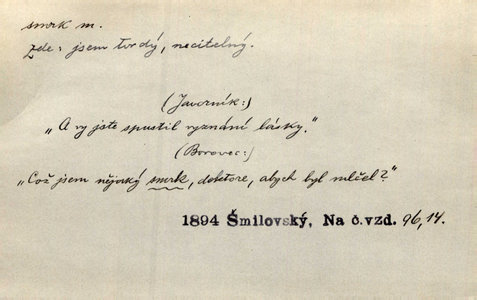 smrk m.
Zde: jsem tvrdý, necitelný.
(Javorník:)
„A vy jste spustil vyznání lásky."
(Borovec:)
„Což jsem nějaký smrk, doktore, abych byl mlčel?"
1894 Šmilovský, Na č.vzd. 96,14.